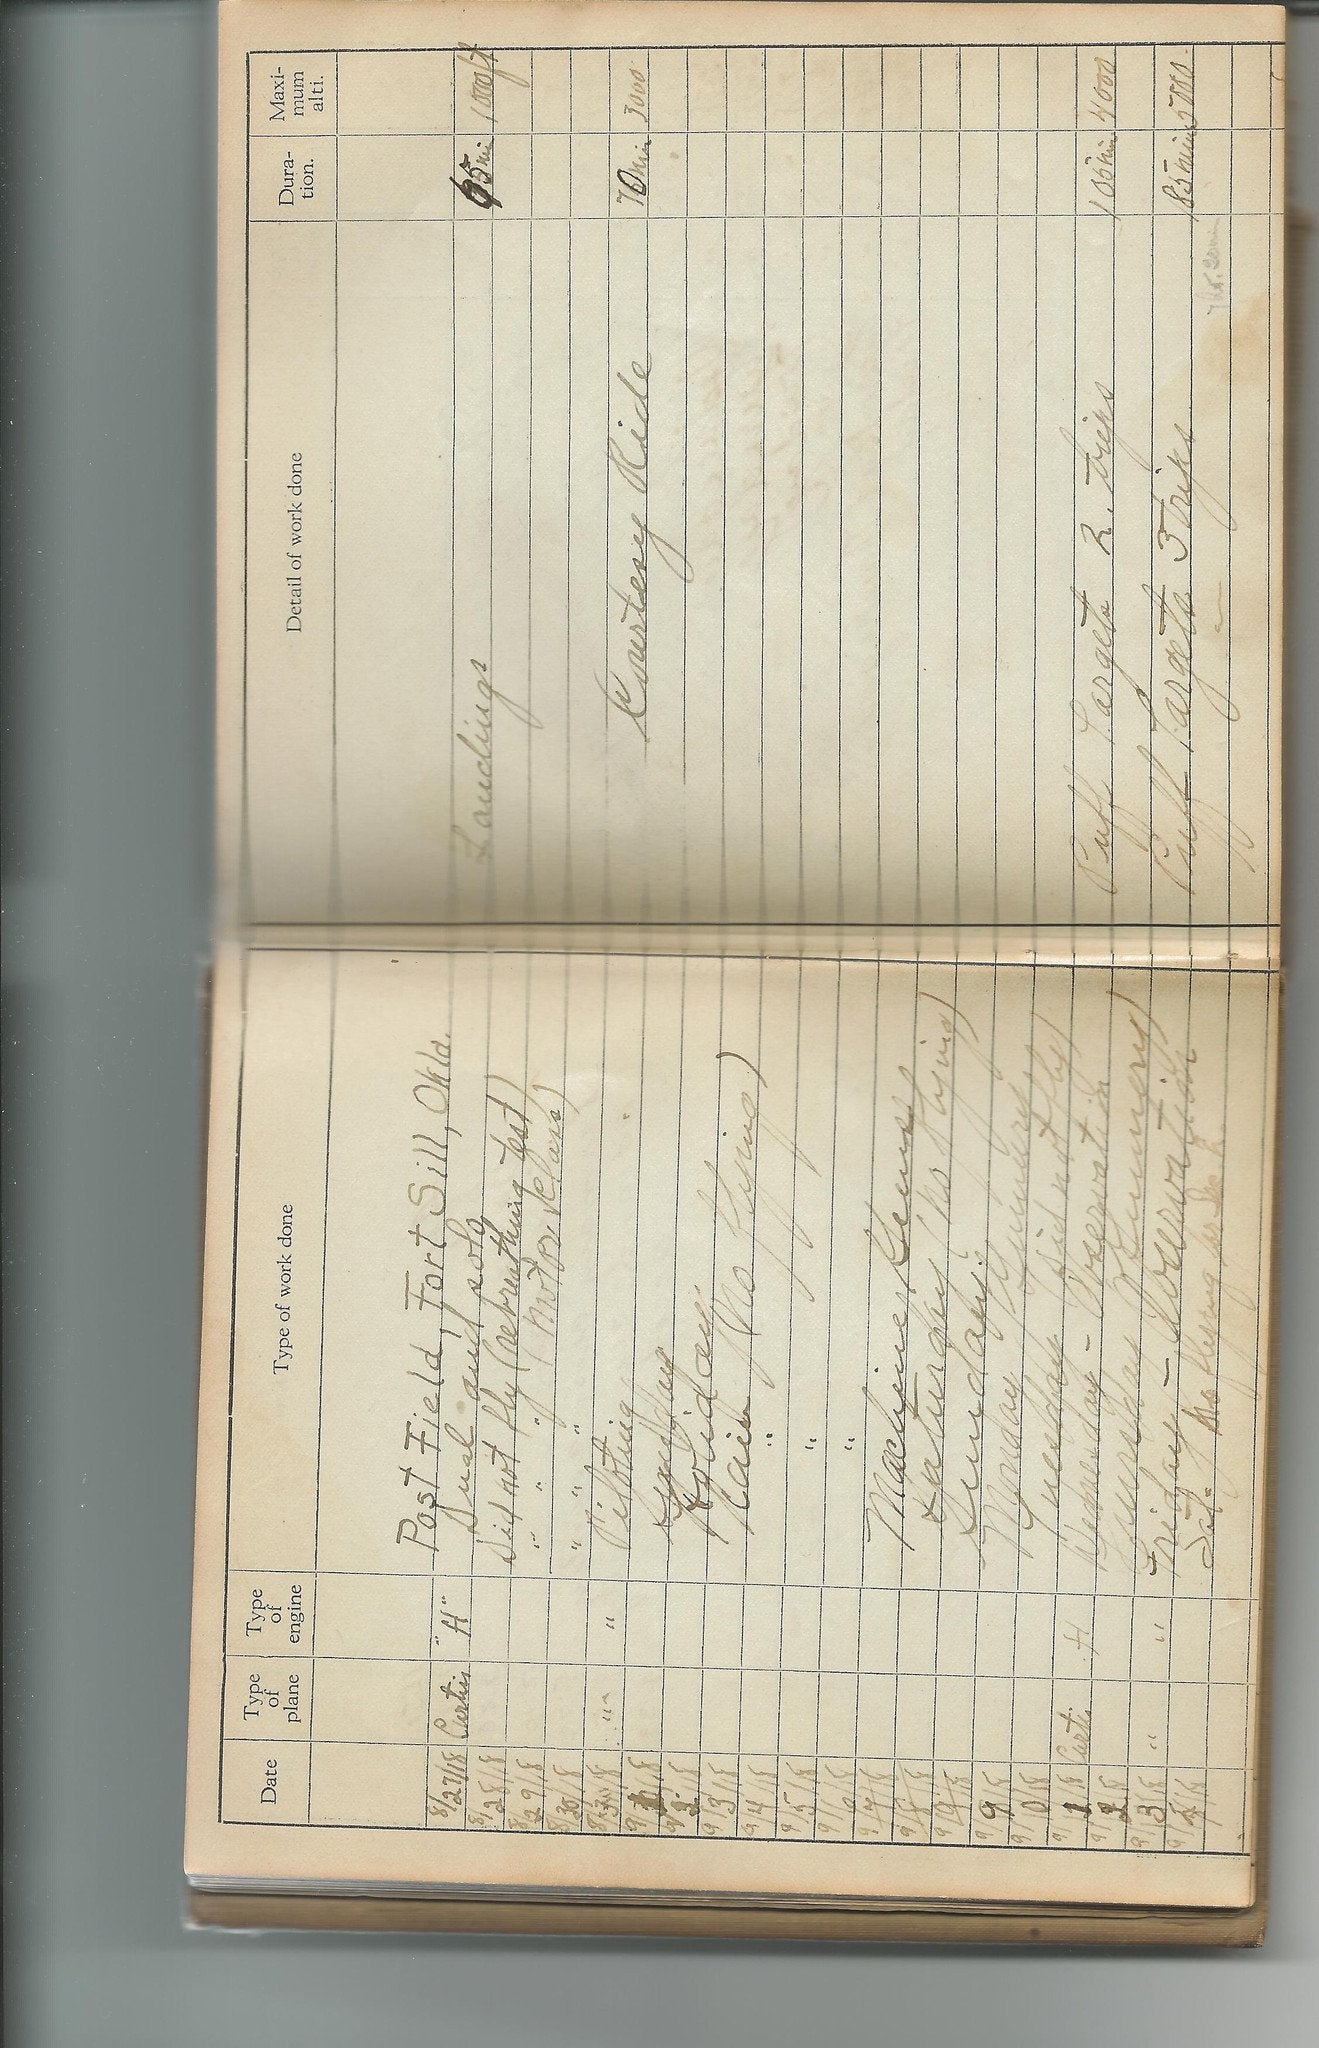 Date Type of plane Type of engine Type of work done Detail of work done Dura- tion. Maxi- mum alti.
Post Field, Fort Sill, Okla.
8/27/18 Curtis "H" Dual and solo Landings 65 mi 1000 ft
8/28/18 Did not fly (rebreathing test)
8/29/18 " " " (motor class)
8/30/18 " " "
8/31/18 " " Piloting Courtesy Ride 70 min 3000
9/1/18 Sunday
9/2/18 Holiday
9/3/18 Rain (No flying)
9/4/18 "
9/5/18 "
9/6/18 "
9/7/18 Machine Guns
9/8/18 Saturday (No flying)
9/9/18 Sunday.
9/9/18 Monday Gunnery
9/10/18 Tuesday (did not fly)
9/11/18 Curtis H Wednesday - Observation Puff Targets 2. trips 100 min 4000
9/12/18 Thursday Gunnery)
9/13/18 " " Friday - Observation Puff Targets 3 Trips 185 min
9/14/18 Sat - No flying